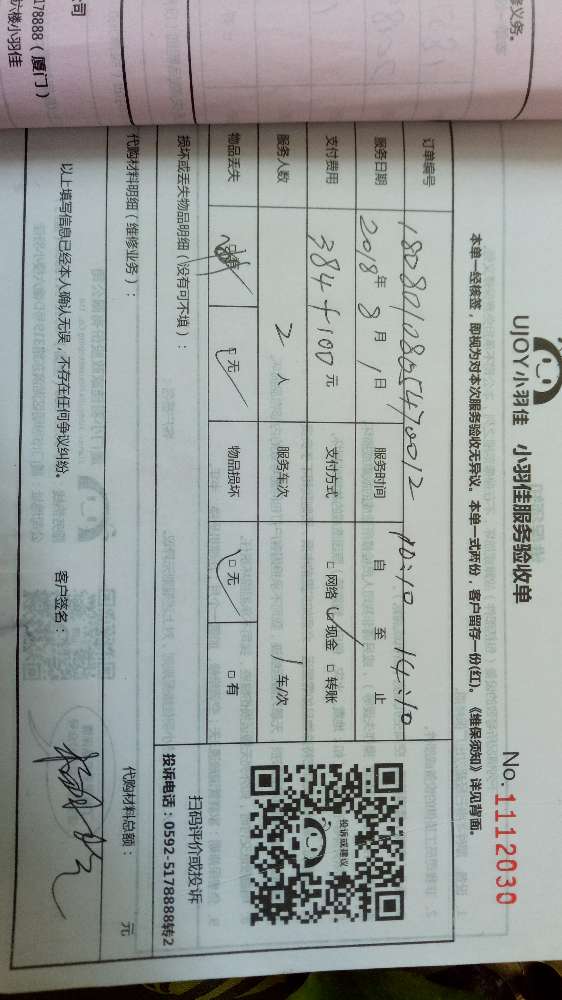 司
5178888（厦门）
六楼小羽佳
修义务。
UJOY小羽佳 小羽佳服务验收单
No. 1112030
本单一经核签，即视为对本次服务验收无异议。本单一式两份，客户留存一份(红)。《维保须知》详见背面。
订单编号 1808010805470012
服务日期 2018年 8月 1日 服务时间 10:10 自 至 14:10 止
支付费用 384+100 元 支付方式 □网络 ☑现金 □转账
服务人数 2 人 服务车次 1 车/次
物品丢失 □无 物品损坏 □无 □有
投诉或建议
扫码评价或投诉
投诉电话：0592-5178888转2
损坏或丢失物品明细（没有可不填）：
代购材料明细（维修业务）： 代购材料总额： 元
以上填写信息已经本人确认无误，不存在任何争议纠纷。 客户签名：